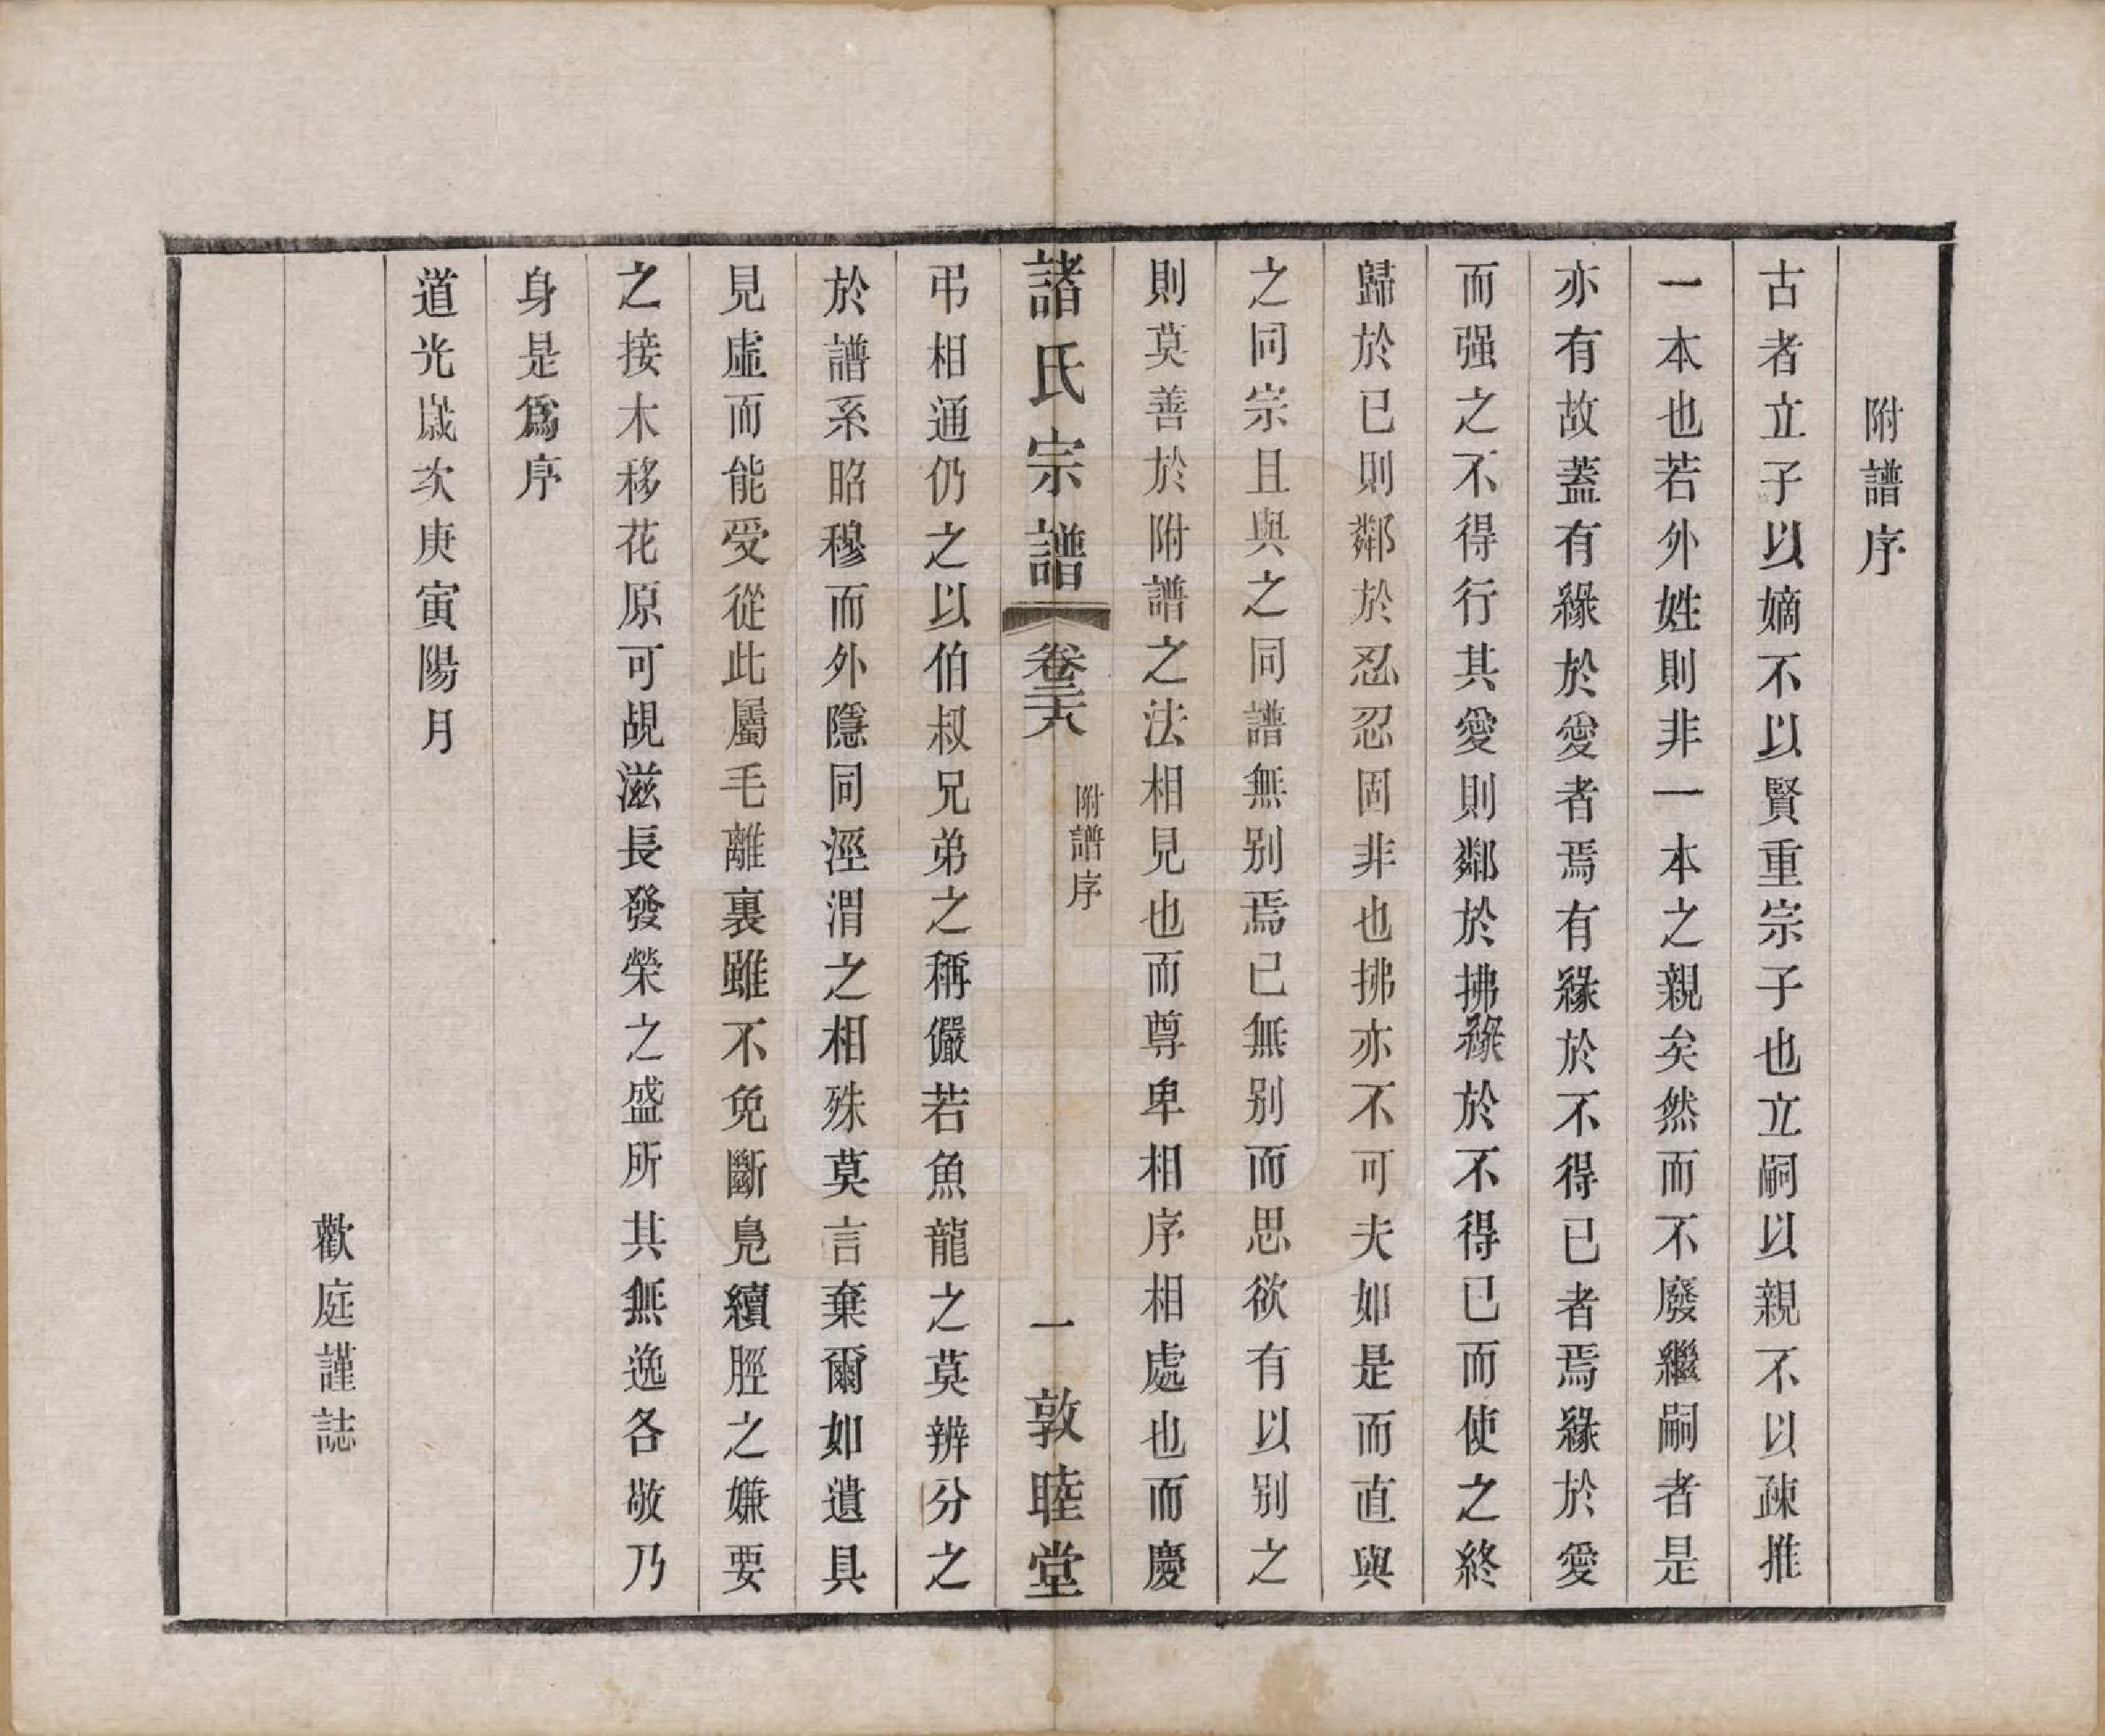 附譜序
古者立子以嫡不以賢重宗子也立嗣以親不以疎推
一本也若外姓則非一本之親矣然而不廢繼嗣者是
亦有故蓋有緣於愛者焉有緣於不得已者焉緣於愛
而强之不得行其愛則鄰於拂緣於不得已而使之終
歸於已則鄰於忍忍固非也拂亦不可夫如是而直與
之同宗且與之同譜無别焉已無别而思欲有以别之
則莫善於附譜之法相見也而尊卑相序相處也而慶
諸氏宗譜 卷三十六 附譜序 一 敦睦堂
弔相通仍之以伯叔兄弟之稱儼若魚龍之莫辨分之
於譜系昭穆而外隱同涇渭之相殊莫言棄爾如遺具
見虛而能受從此屬毛離裏雖不免斷鳧續脛之嫌要
之接木移花原可覘滋長發榮之盛所其無逸各敬乃
身是爲序
道光歲次庚寅陽月
歡庭謹誌